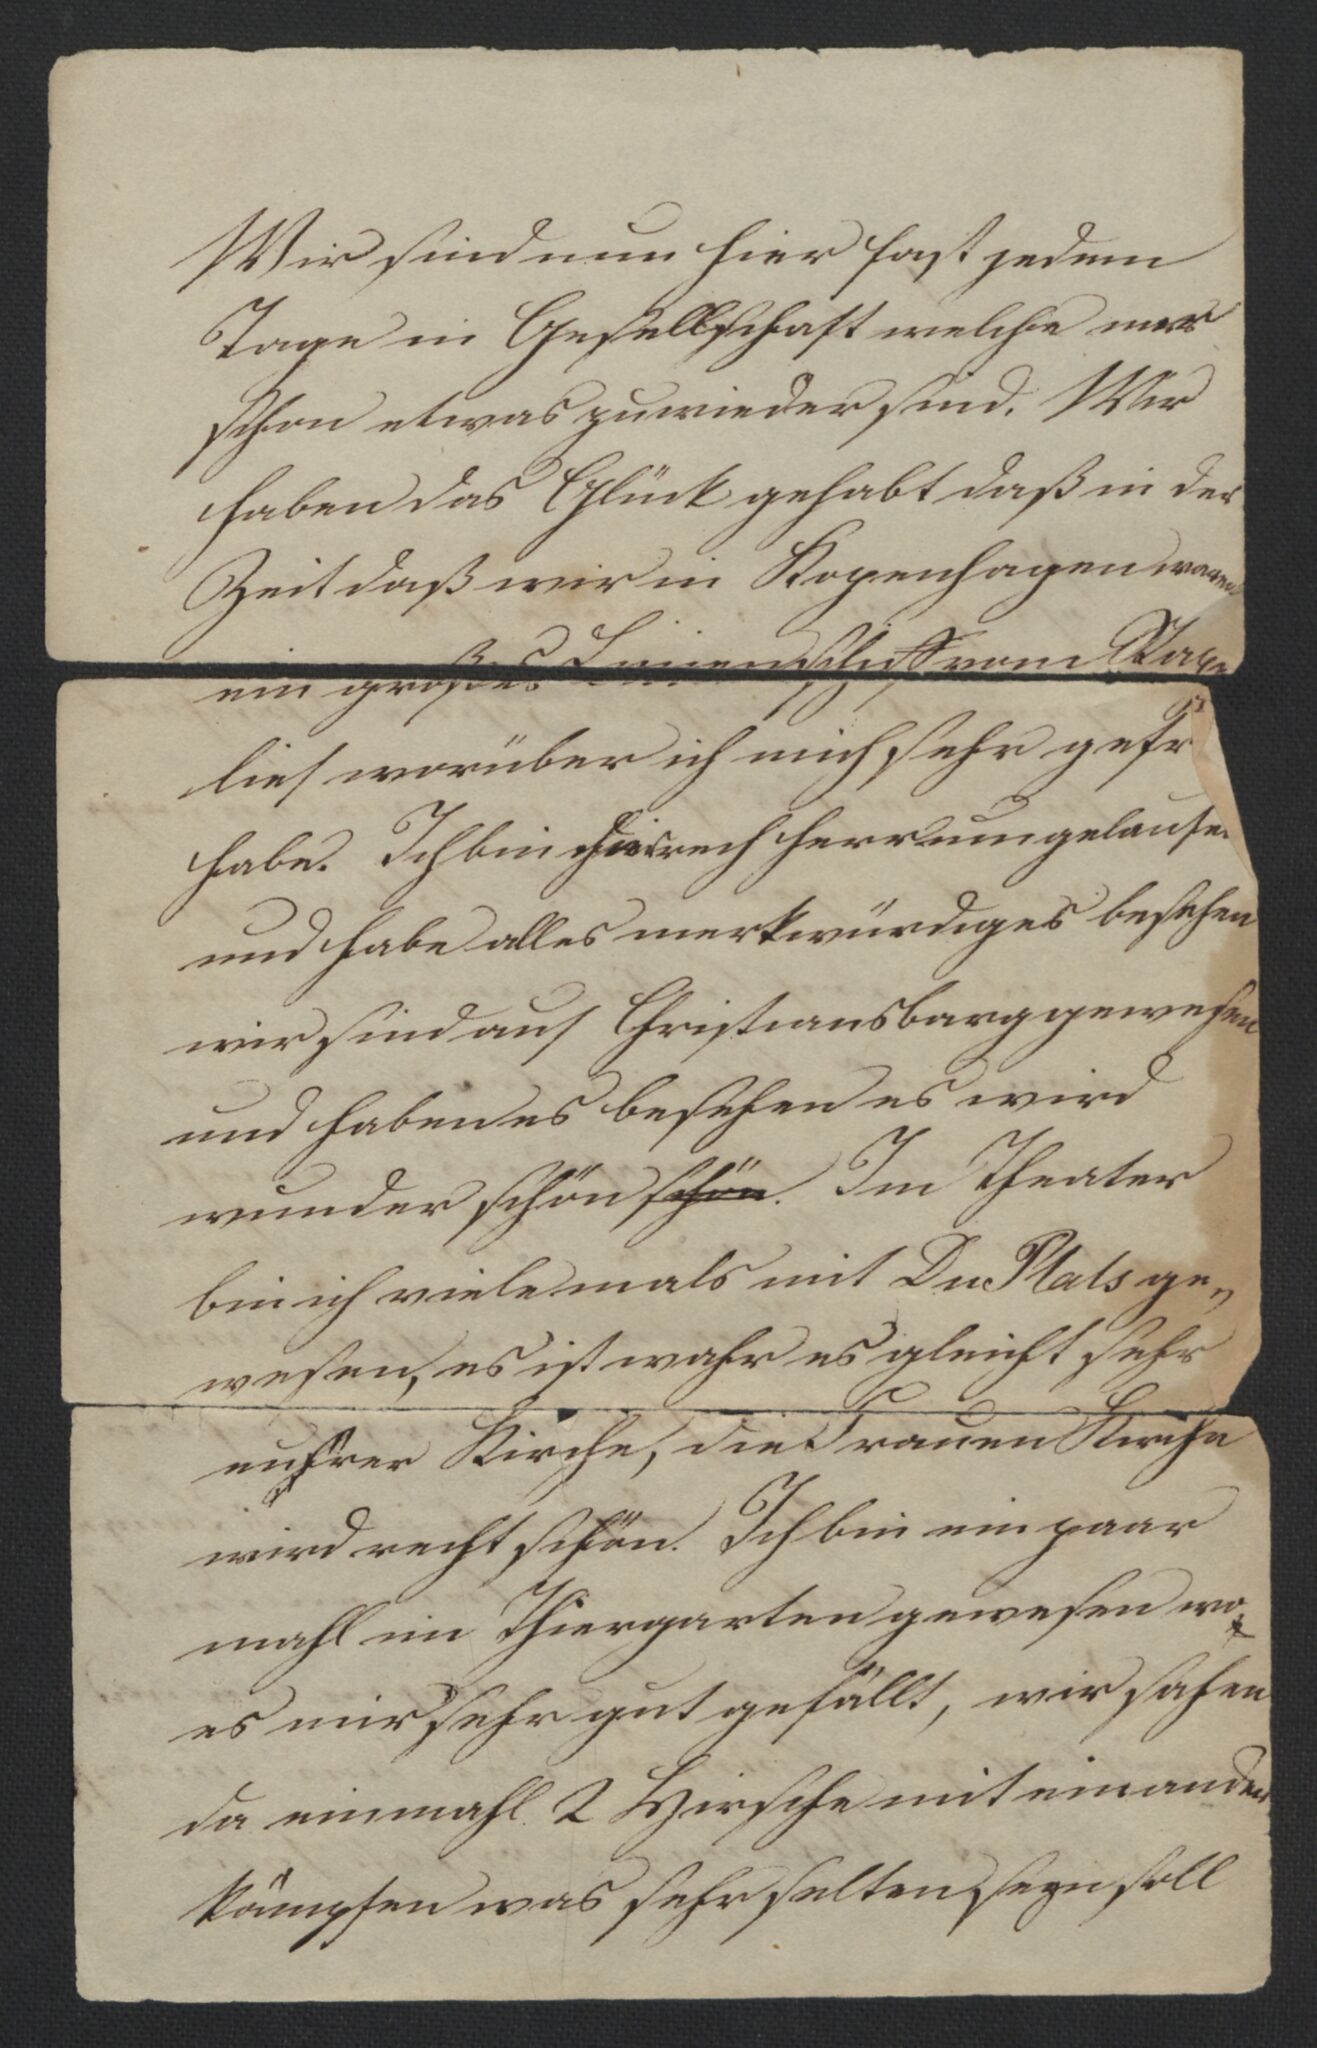 Wir sind nun hier fast jedem
Tage in Gesellschaft welche mir
schon etwas zuwieder sind. Wir
haben das Glück gehabt daß in der
Zeit daß wir in Kopenhagen waren
ein großes Linienschiff vom Stape
lief worüber ich mich sehr gefr
habe. Ich bin hier rech herrumgelaufen
und habe alles merkwürdiges besehen
wir sind auf Christiansbarg gewesen
und haben es besehen es wird
wunder schön schön. Im Theater
bin ich viele mals mit Du Plats ge„
wesen, es ist wahr es gleicht sehr
unsrer Kirche, die Frauen Kirche
wird recht schön. Ich bin ein paar
mahl im Thiergarten gewesen wo
es mir sehr gut gefällt, wir sahen
da einmahl 2 Hirsche mit einander
kämpfen was sehr selten seyn soll